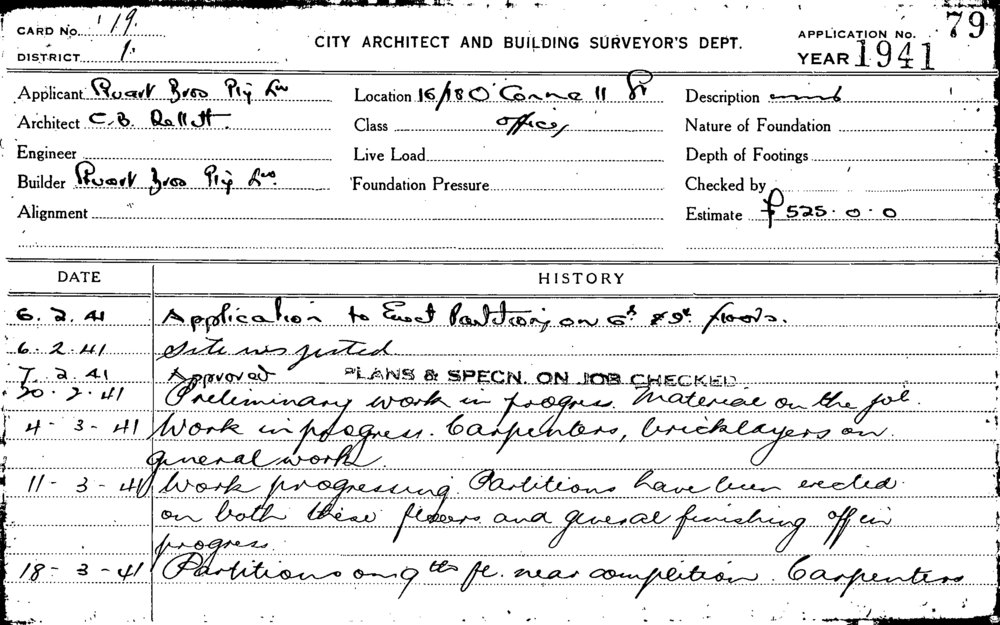 CARD No. 19.
DISTRICT 1.
CITY ARCHITECT AND BUILDING SURVEYOR'S DEPT.
APPLICATION No. 79
YEAR 1941
Applicant Stuart Bros Pty Ltd
Location 16/18 O'Connell St
Description
Architect C.B. Dellit.
Class offices
Nature of Foundation
Engineer
Live Load
Depth of Footings
Builder Stuart Bros Pty Ltd.
Foundation Pressure
Checked by
Alignment
Estimate £525.0.0
DATE HISTORY
6.2.41 Application to Erect Partitions on 6th & 9th floors.
6.2.41 Site inspected
7.2.41 Approved PLANS & SPECN. ON JOB CHECKED.
20.2.41 Preliminary work in progress. Material on the job.
4-3-41 Work in progress. Carpenters, bricklayers on
general work.
11-3-41 Work progressing. Partitions have been erected
on both these floors and general finishing off in
progress.
18-3-41 Partitions on 9th fl. near completion. Carpenters